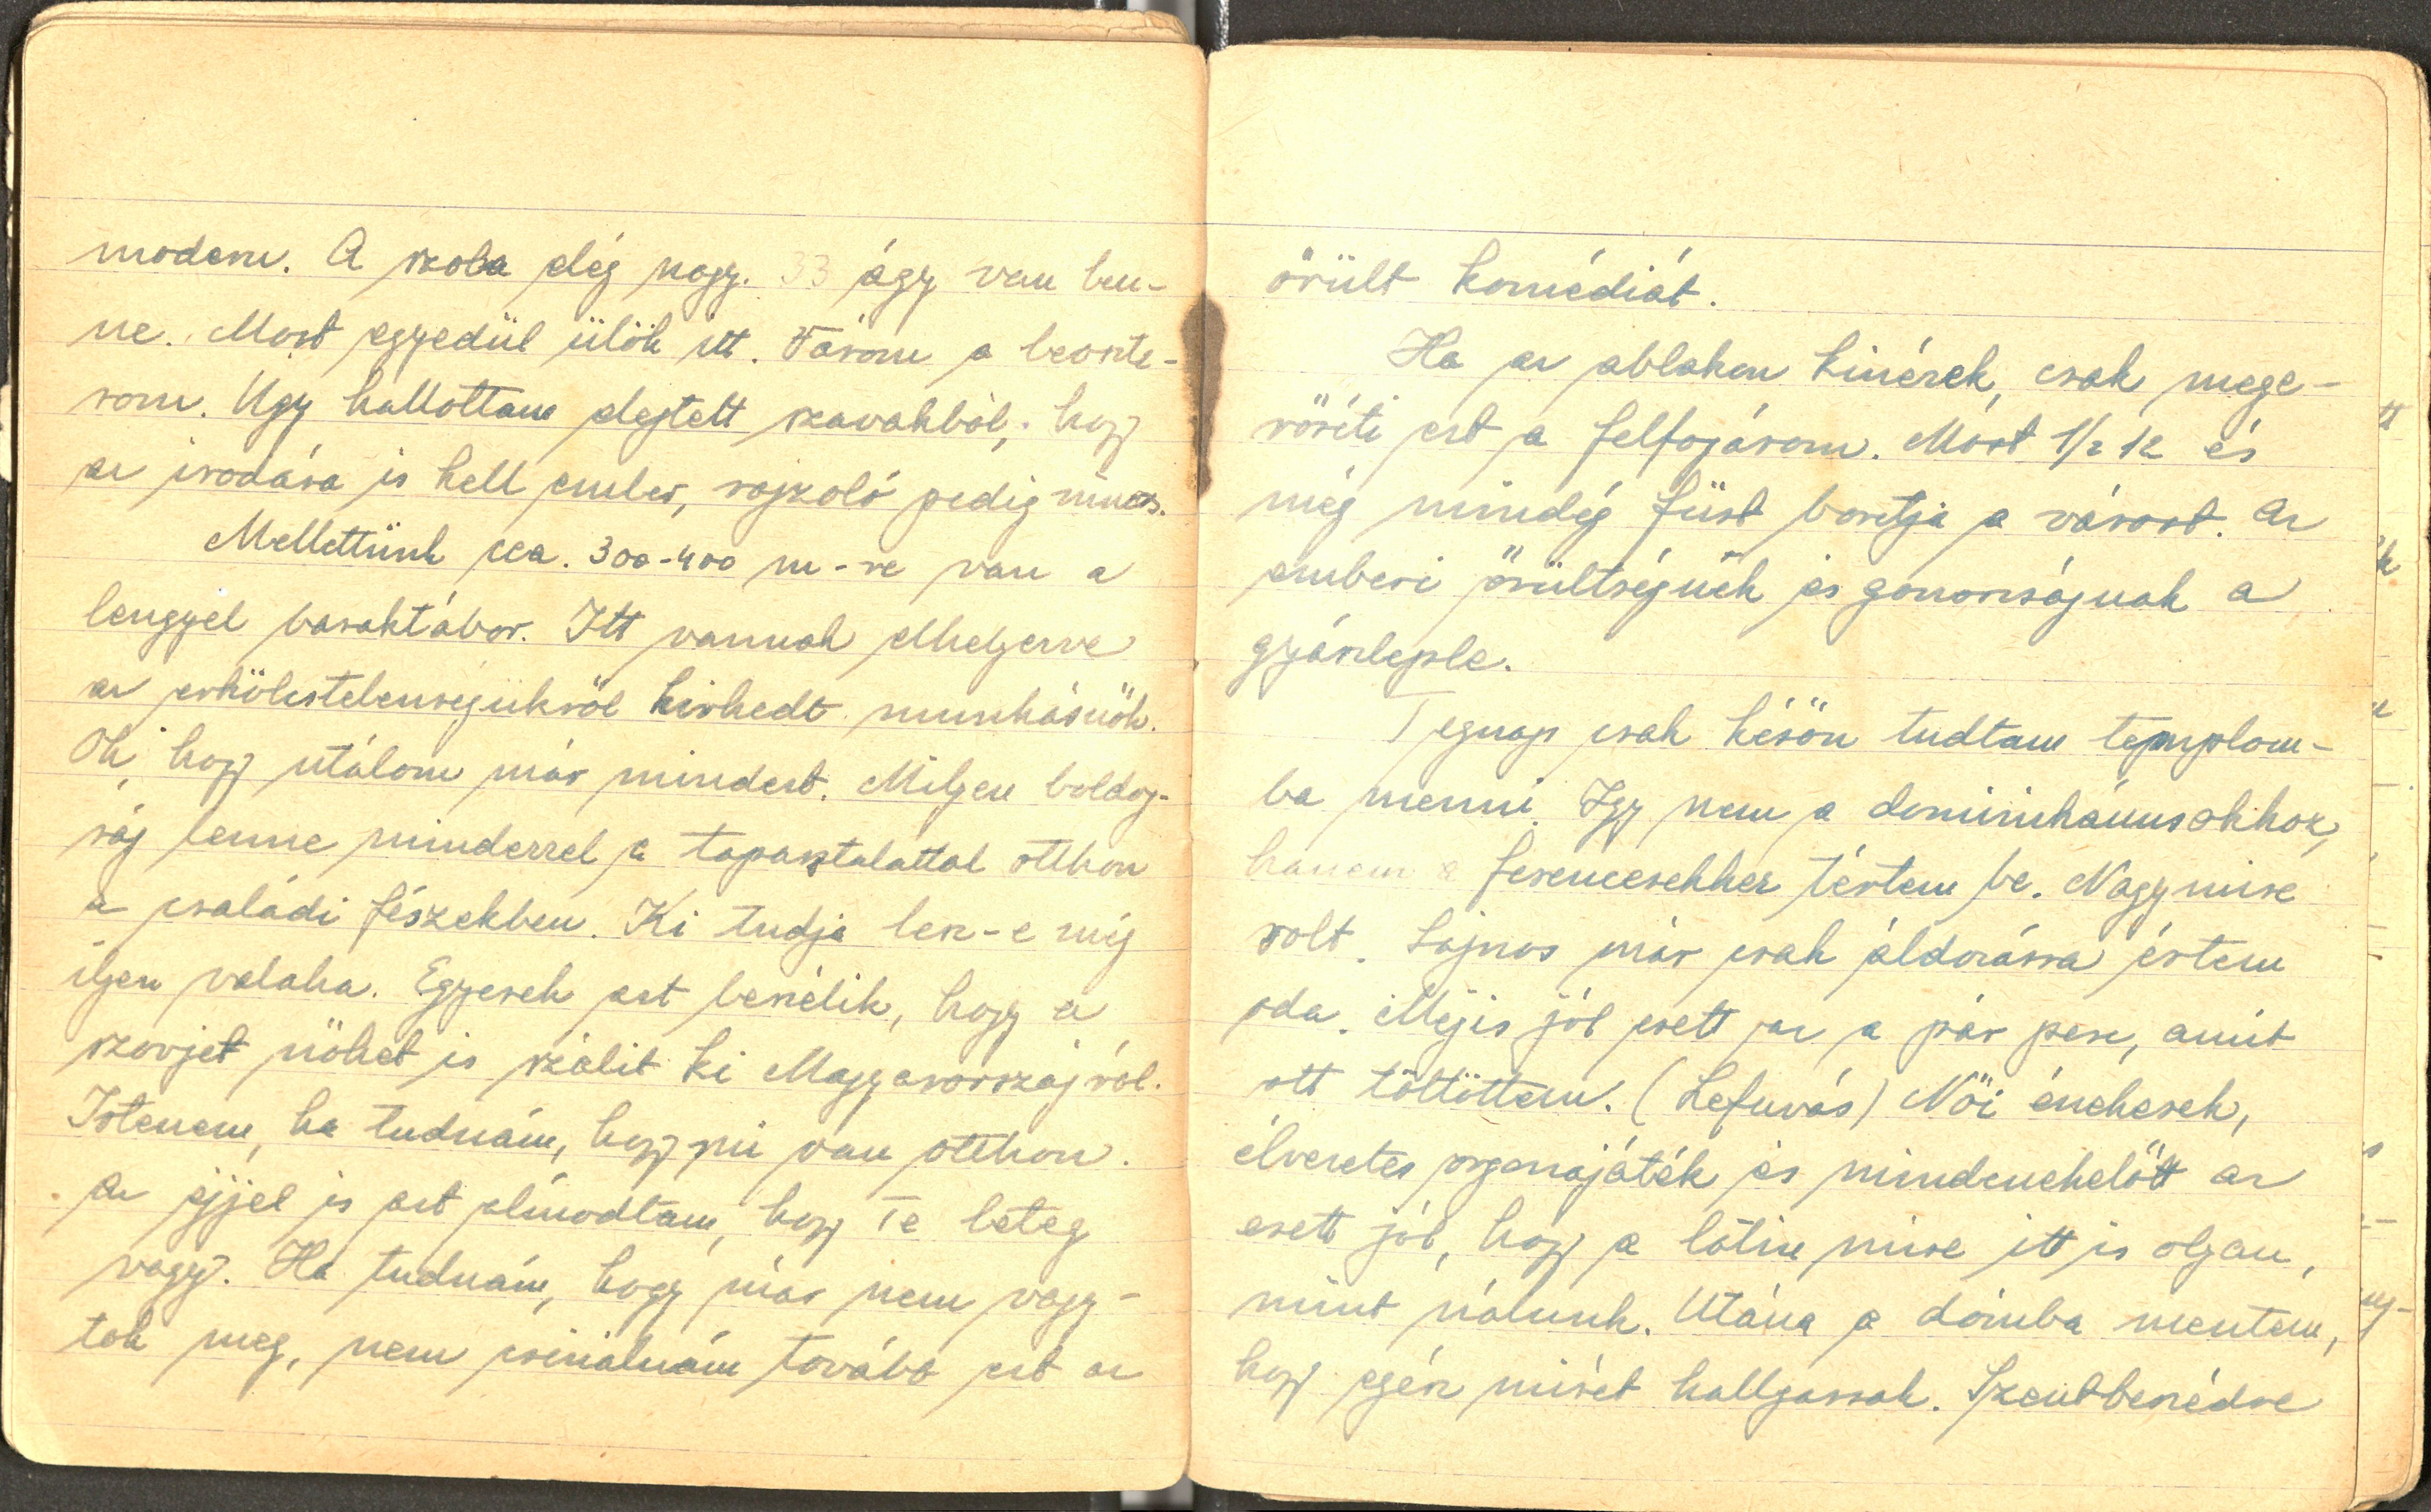 modern. A szoba elég nagy. 33 ágy van ben-
ne. Most egyedül ülök itt. Várom a beoszta-
som. Ugy hallottam elejtett szavakból, hogy
az irodára is kell ember, rajzoló pedig nincs.
Mellettünk cca. 300-400 m-re van a
lengyel baraktábor. Itt vannak elhelyezve
az erkölcstelenségükről hírhedt munkásnők.
Oh, hogy utálom már mindezt. Milyen boldog-
ság lenne minderrel a tapasztalattal otthon
a családi fészekben. Ki tudja lesz-e még
ilyen valaha. Egyesek azt beszélik, hogy a
szovjet nőket is szálit ki Magyarországról.
Istenem, ha tudnám, hogy mi van otthon.
Az éjjel is azt álmodtam, hogy Te beteg
vagy. Ha tudnám, hogy már nem vagy-
tok meg, nem csinálnám tovább ezt az
őrült komédiát.
Ha az ablakon kinézek, csak mege-
rősíti ezt a felfogásom. Most 1/2 12 és
még mindég füst boritja a várost. Az
emberi őrültségnek és gonoszságnak a
gyászleple.
Tegnap csak későn tudtam templom-
ba menni. Igy nem a dominikánusokhoz,
hanem a ferencesekhez tértem be. Nagymise
volt. Sajnos már csak áldozásra értem
oda. Mégis jól esett az a pár perc, amit
ott töltöttem. (Lefuvás) Női énekesek,
élvezetes orgonajáték és mindenekelőtt az
esett jól, hogy a latin mise itt is olyan,
mint nálunk. Utána a dómba mentem,
hogy egész misét hallgassak. Szentbeszédre